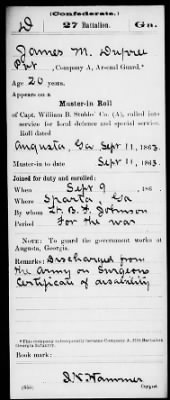 (Confederate.)
D 27 Battalion. Ga.
James M. Dupree
Pvt, Company A, Arsenal Guard.*
Age 20 years.
Appears on a
Muster-in Roll
of Capt. William B. Stubbs' Co. (A), called into
service for local defence and special service.
Roll dated
Augusta, Ga Sept 11, 1863.
Muster-in to date Sept 11, 1863.
Joined for duty and enrolled:
When Sept 9, 186 .
Where Sparta, Ga
By whom Lt. B. F. Johnson
Period For the war
NOTE: To guard the government works at
Augusta, Georgia.
Remarks: Discharged from
the Army on Surgeons
Certificate of disability
*This company subsequently became Company A, 27th Battalion
Georgia Infantry.
Book mark:
Copyist.